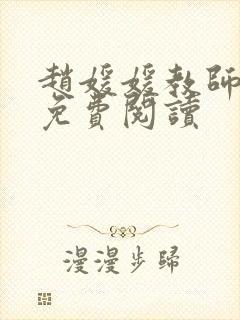 趙媛媛教師
免費閱讀
漫漫步歸